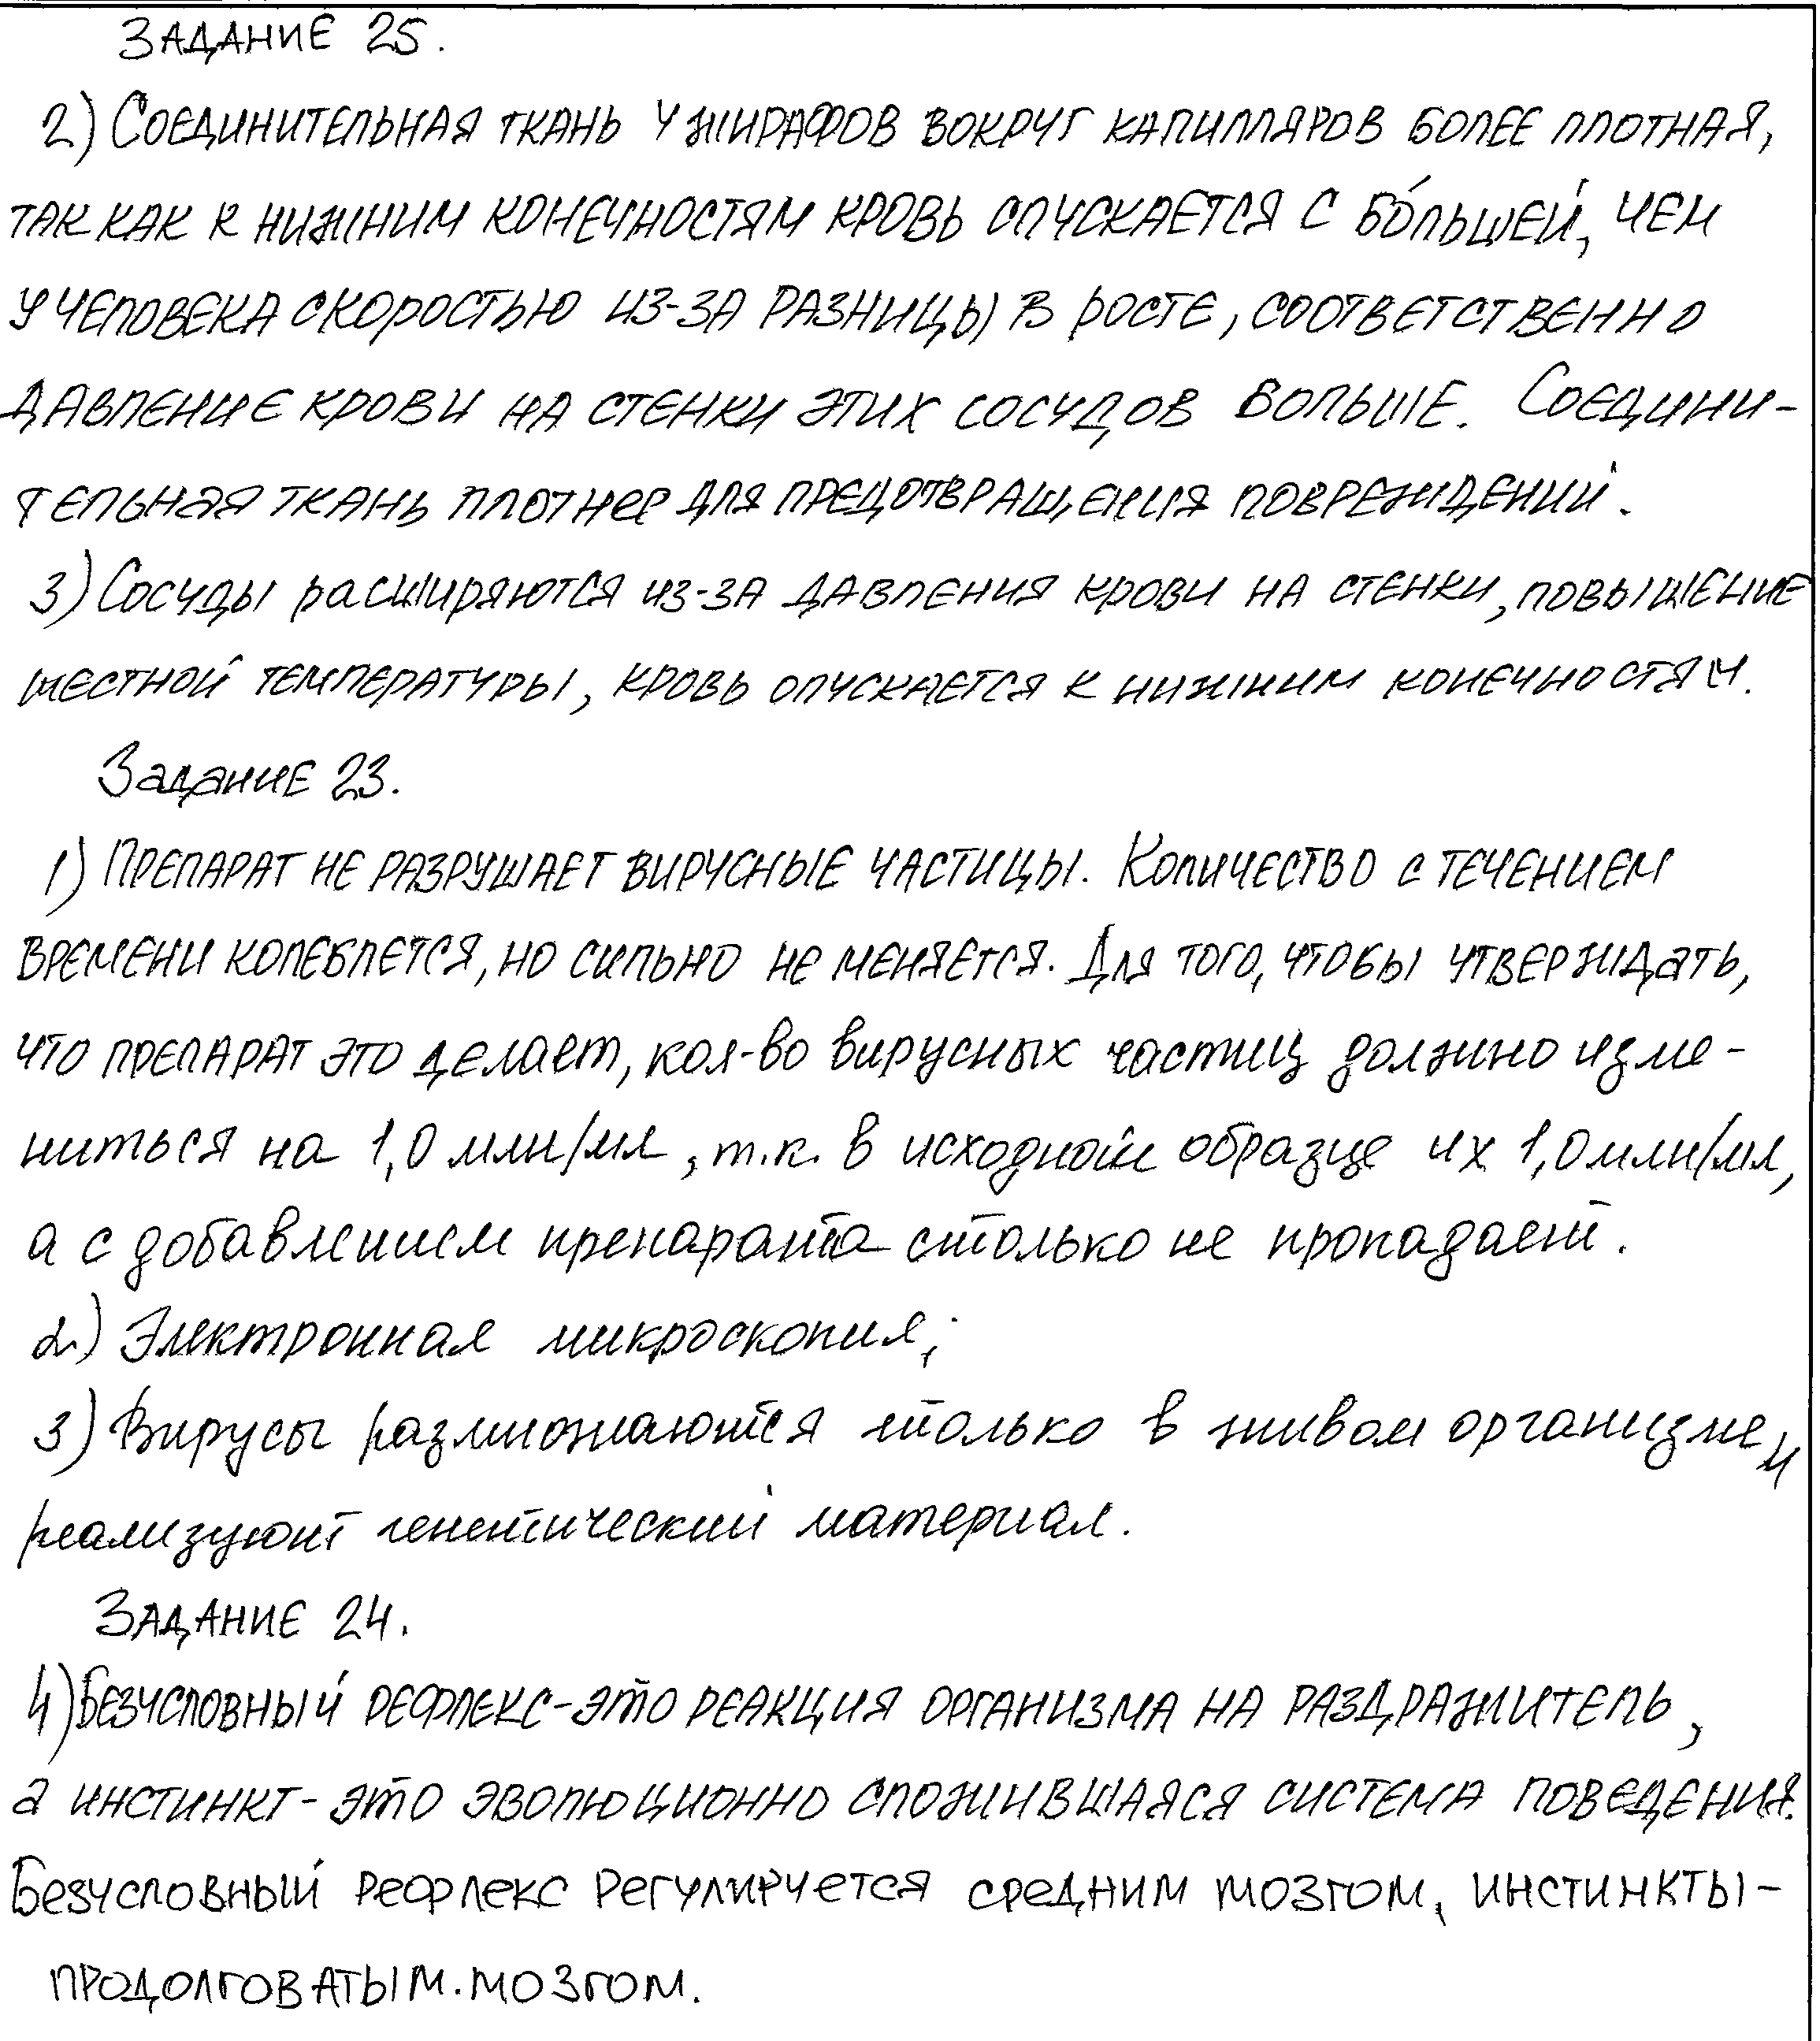 ЗАДАНИЕ 25.
2) Соединительная ткань у жирафов вокруг капилляров более плотная,
так как к нижним конечностям кровь спускается с бо́льшей, чем
у человека скоростью из-за разницы в росте, соответственно
давление крови на стенки этих сосудов больше. Соедини-
тельная ткань плотнее для предотвращения повреждений.
3) Сосуды расширяются из-за давления крови на стенки, повышение
местной температуры, кровь опускается к нижним конечностям.
Задание 23.
1) Препарат не разрушает вирусные частицы. Количество с течением
времени колеблется, но сильно не меняется. Для того, чтобы утверждать,
что препарат это делает, кол-во вирусных частиц должно изме-
ниться на 1,0 млн/мл, т.к. в исходном образце их 1,0 млн/мл,
а с добавлением препарата столько не пропадает.
2) Электронная микроскопия;
3) Вирусы размножаются только в живом организме и
реализуют генетический материал.
ЗАДАНИЕ 24.
4) Безусловный рефлекс - это реакция организма на раздражитель,
а инстинкт - это эволюционно сложившаяся система поведения.
Безусловный рефлекс регулируется средним мозгом, инстинкты -
продолговатым мозгом.